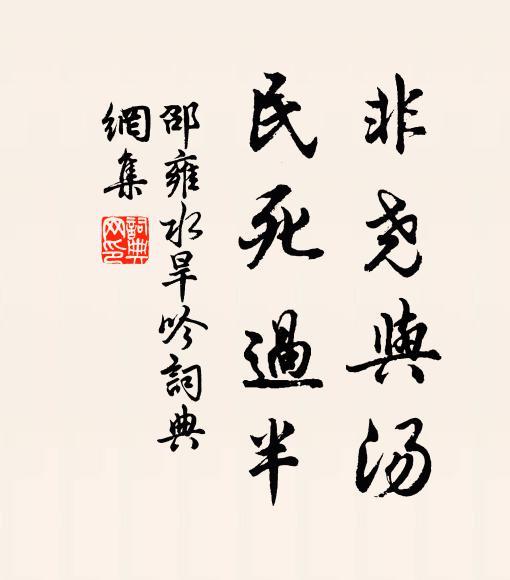 非尧與汤
民死過半
邵雍水旱吟詞典
網集
詞典
网印